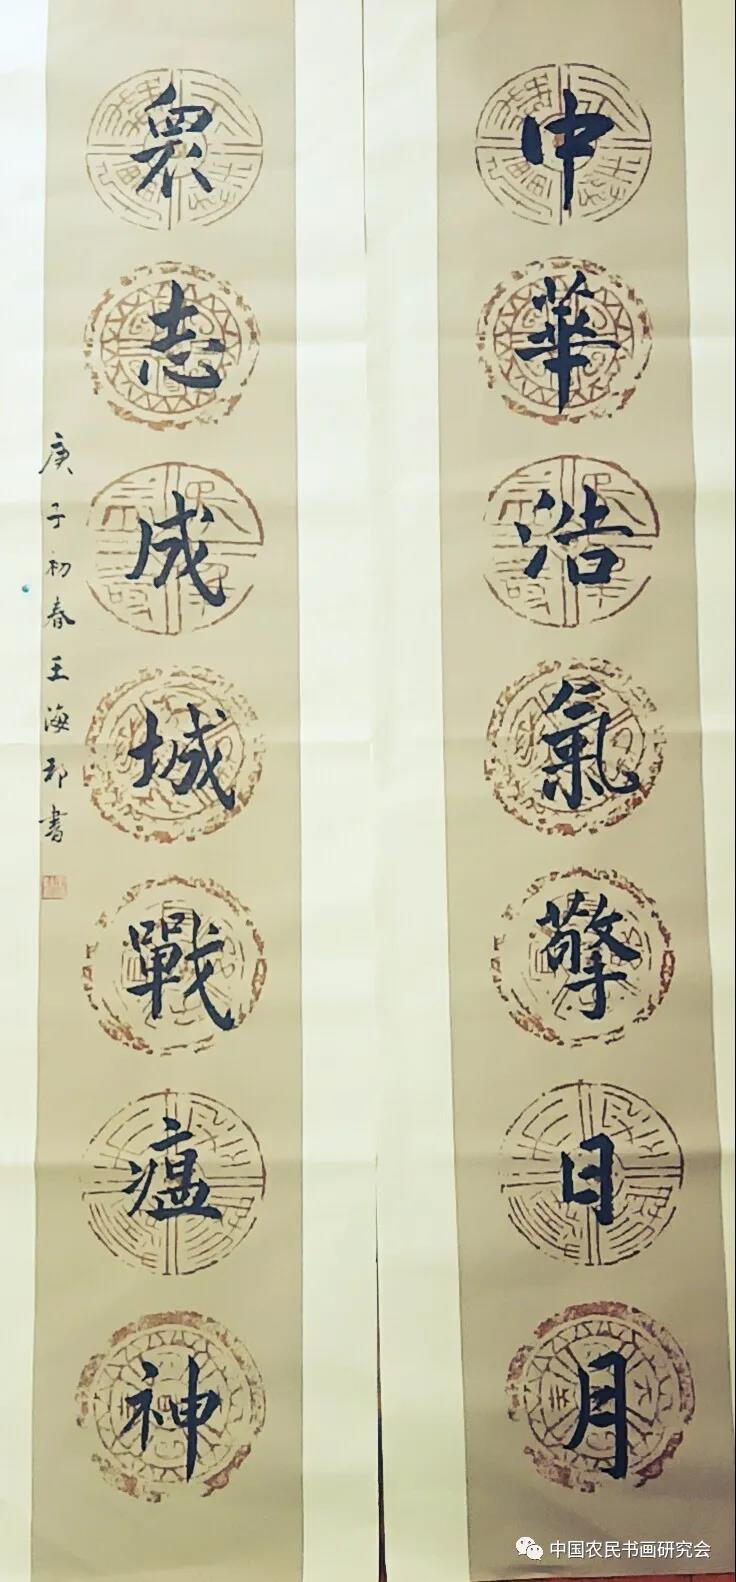 中華浩氣擎日月
眾志成城戰瘟神
庚子初春王海邦書
中国农民书画研究会